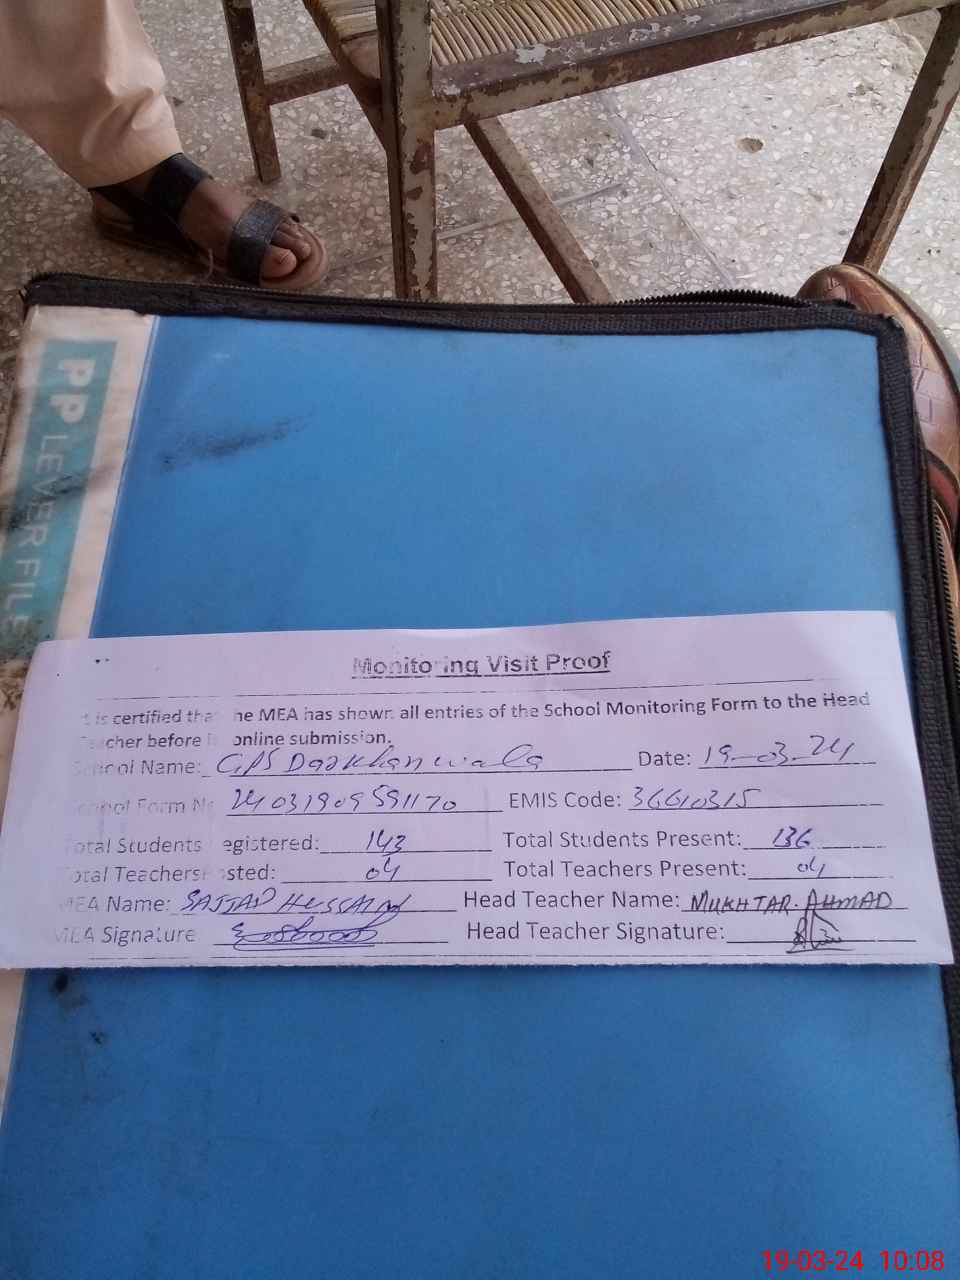 PP LEVER FILE
Monitoring Visit Proof
is certified tha he MEA has shown all entries of the School Monitoring Form to the Head
cher before i online submission.
School Name: GPS Darkhanwala Date: 19-03-24
School Form N 24031909591170 EMIS Code: 36610315
Total Students egistered: 143 Total Students Present: 136
Total Teachers sted: 04 Total Teachers Present: 04
MEA Name: SAJJAD HUSSAIN Head Teacher Name: MUKHTAR AHMAD
MEA Signature Head Teacher Signature:
19-03-24 10:08